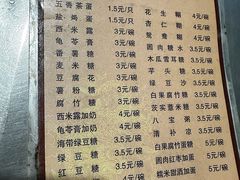 五香茶蛋 1.5元/只
盐焗蛋 1.5元/只
西米露 3元/碗
龟苓膏 3元/碗
番薯糖 3元/碗
麦米糖 3元/碗
豆腐花 3元/碗
薯粉糖 3元/碗
腐竹糖 3元/碗
西米露加奶 4元/碗
龟苓膏加奶 4元/碗
海带绿豆糖 3.5元/碗
绿豆糖 3.5元/碗
红豆糖 3.5元/碗
花生糊 4元/碗
杏仁糊 4元/碗
鸳鸯糊 4元/碗
圆肉糖水 3.5元/碗
木瓜雪耳糖 3.5元/碗
芋头糖 3.5元/碗
绿豆沙 3.5元/碗
白果腐竹糖 3.5元/碗
茨实薏米糖 3.5元/碗
八宝粥 3.5元/碗
清补凉 3.5元/碗
白果腐竹蛋糖 5元/碗
圆肉红枣加蛋 5元/碗
糯米甜酒加蛋 5元/碗